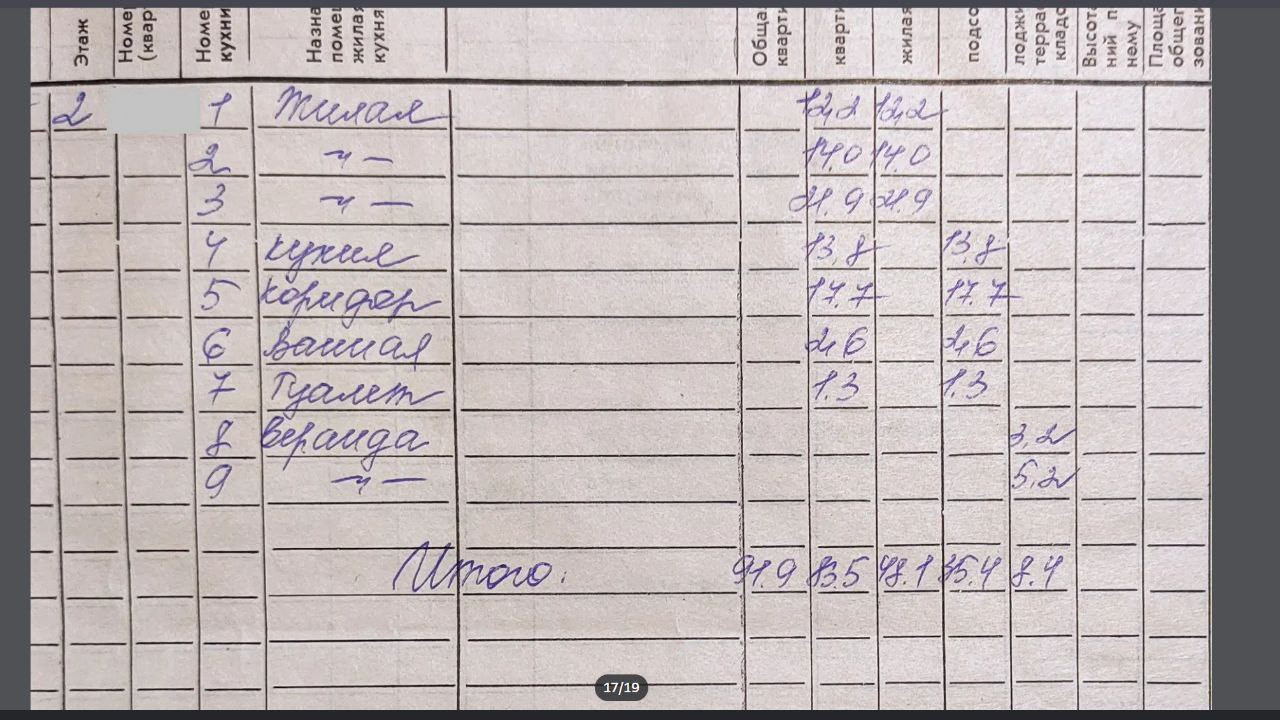 Этаж Номе (кварт Номе кухни Назна помещ жилая кухня Обща кварти кварти жилая подсо лоджи террас кладо Высота ний по нему Площа общег зовани
2 1 Жилая 12,2 12,2
2 -"- 14,0 14,0
3 -"- 21,9 21,9
4 кухня 13,8 13,8
5 коридор 17,7 17,7
6 ванная 2,6 2,6
7 Туалет 1,3 1,3
8 веранда 3,2
9 -"- 5,2
Итого: 91.9 83.5 48.1 35.4 8.4
17/19